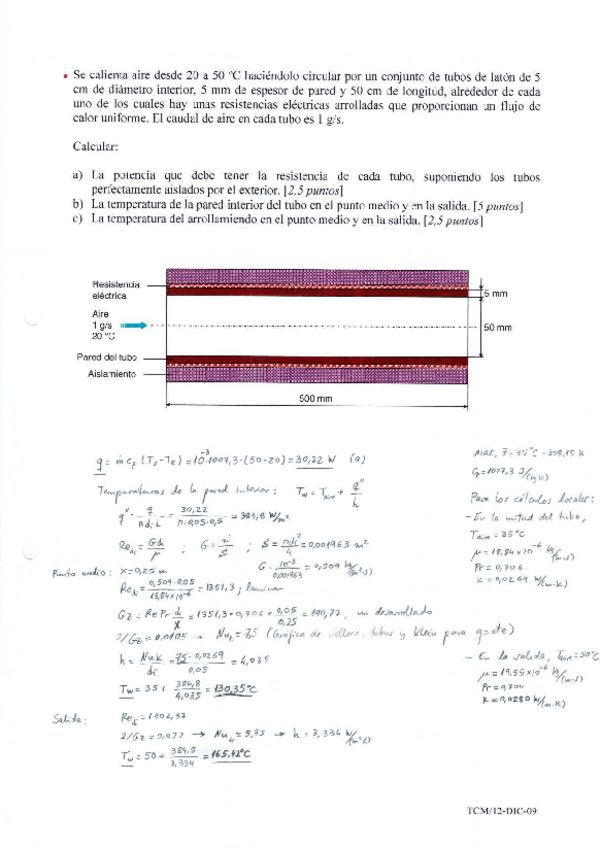 • Se calienta aire desde 20 a 50 ºC haciéndolo circular por un conjunto de tubos de latón de 5
cm de diámetro interior, 5 mm de espesor de pared y 50 cm de longitud, alrededor de cada
uno de los cuales hay unas resistencias eléctricas arrolladas que proporcionan un flujo de
calor uniforme. El caudal de aire en cada tubo es 1 g/s.
Calcular:
a) La potencia que debe tener la resistencia de cada tubo, suponiendo los tubos
perfectamente aislados por el exterior. [2,5 puntos]
b) La temperatura de la pared interior del tubo en el punto medio y en la salida. [5 puntos]
c) La temperatura del arrollamiendo en el punto medio y en la salida. [2,5 puntos]
Resistencia
eléctrica
5 mm
Aire
1 g/s
20 ºC
50 mm
Pared del tubo
Aislamiento
500 mm
q = ṁ cp (Ts - Te) = 10⁻³·1007,3·(50-20) = 30,22 W (a)
AIRE, T = 35°C = 308,15 K
Cp = 1007,3 J/(kg K)
Temperaturas de la pared interior: Tw = Taire + q"/h
Para los cálculos locales:
q" = q/(π di L) = 30,22/(π·0,05·0,5) = 384,8 W/m²
- En la mitad del tubo,
Taire = 35°C
μ = 18,84×10⁻⁶ kg/(m·s)
Pr = 0,706
k = 0,0269 W/(m·K)
Redi = G di/μ ; G = ṁ/S ; S = π di²/4 = 0,001963 m²
G = 10⁻³/0,001963 = 0,509 kg/(m²·s)
Punto medio: x = 0,25 m
Redi = 0,509·0,05/18,84×10⁻⁶ = 1351,3 ; laminar
Gz = Re Pr di/x = 1351,3×0,706×0,05/0,25 = 190,77, un desarrollado
2/Gz = 0,0105 → Nux = 7,5 (Gráfico de Sellars, tribus y Klein para q = cte)
h = Nu k/di = 7,5·0,0269/0,05 = 4,035
Tw = 35 + 384,8/4,035 = 130,35°C
- En la salida, Taire = 50°C
μ = 19,55×10⁻⁶ kg/(m·s)
Pr = 0,704
k = 0,0280 W/(m·K)
Salida: Redi = 1302,57
2/Gz = 0,022 → Nux = 5,95 → h = 3,334 W/(m²·K)
Tw = 50 + 384,8/3,334 = 165,42°C
TCM/12-DIC-09